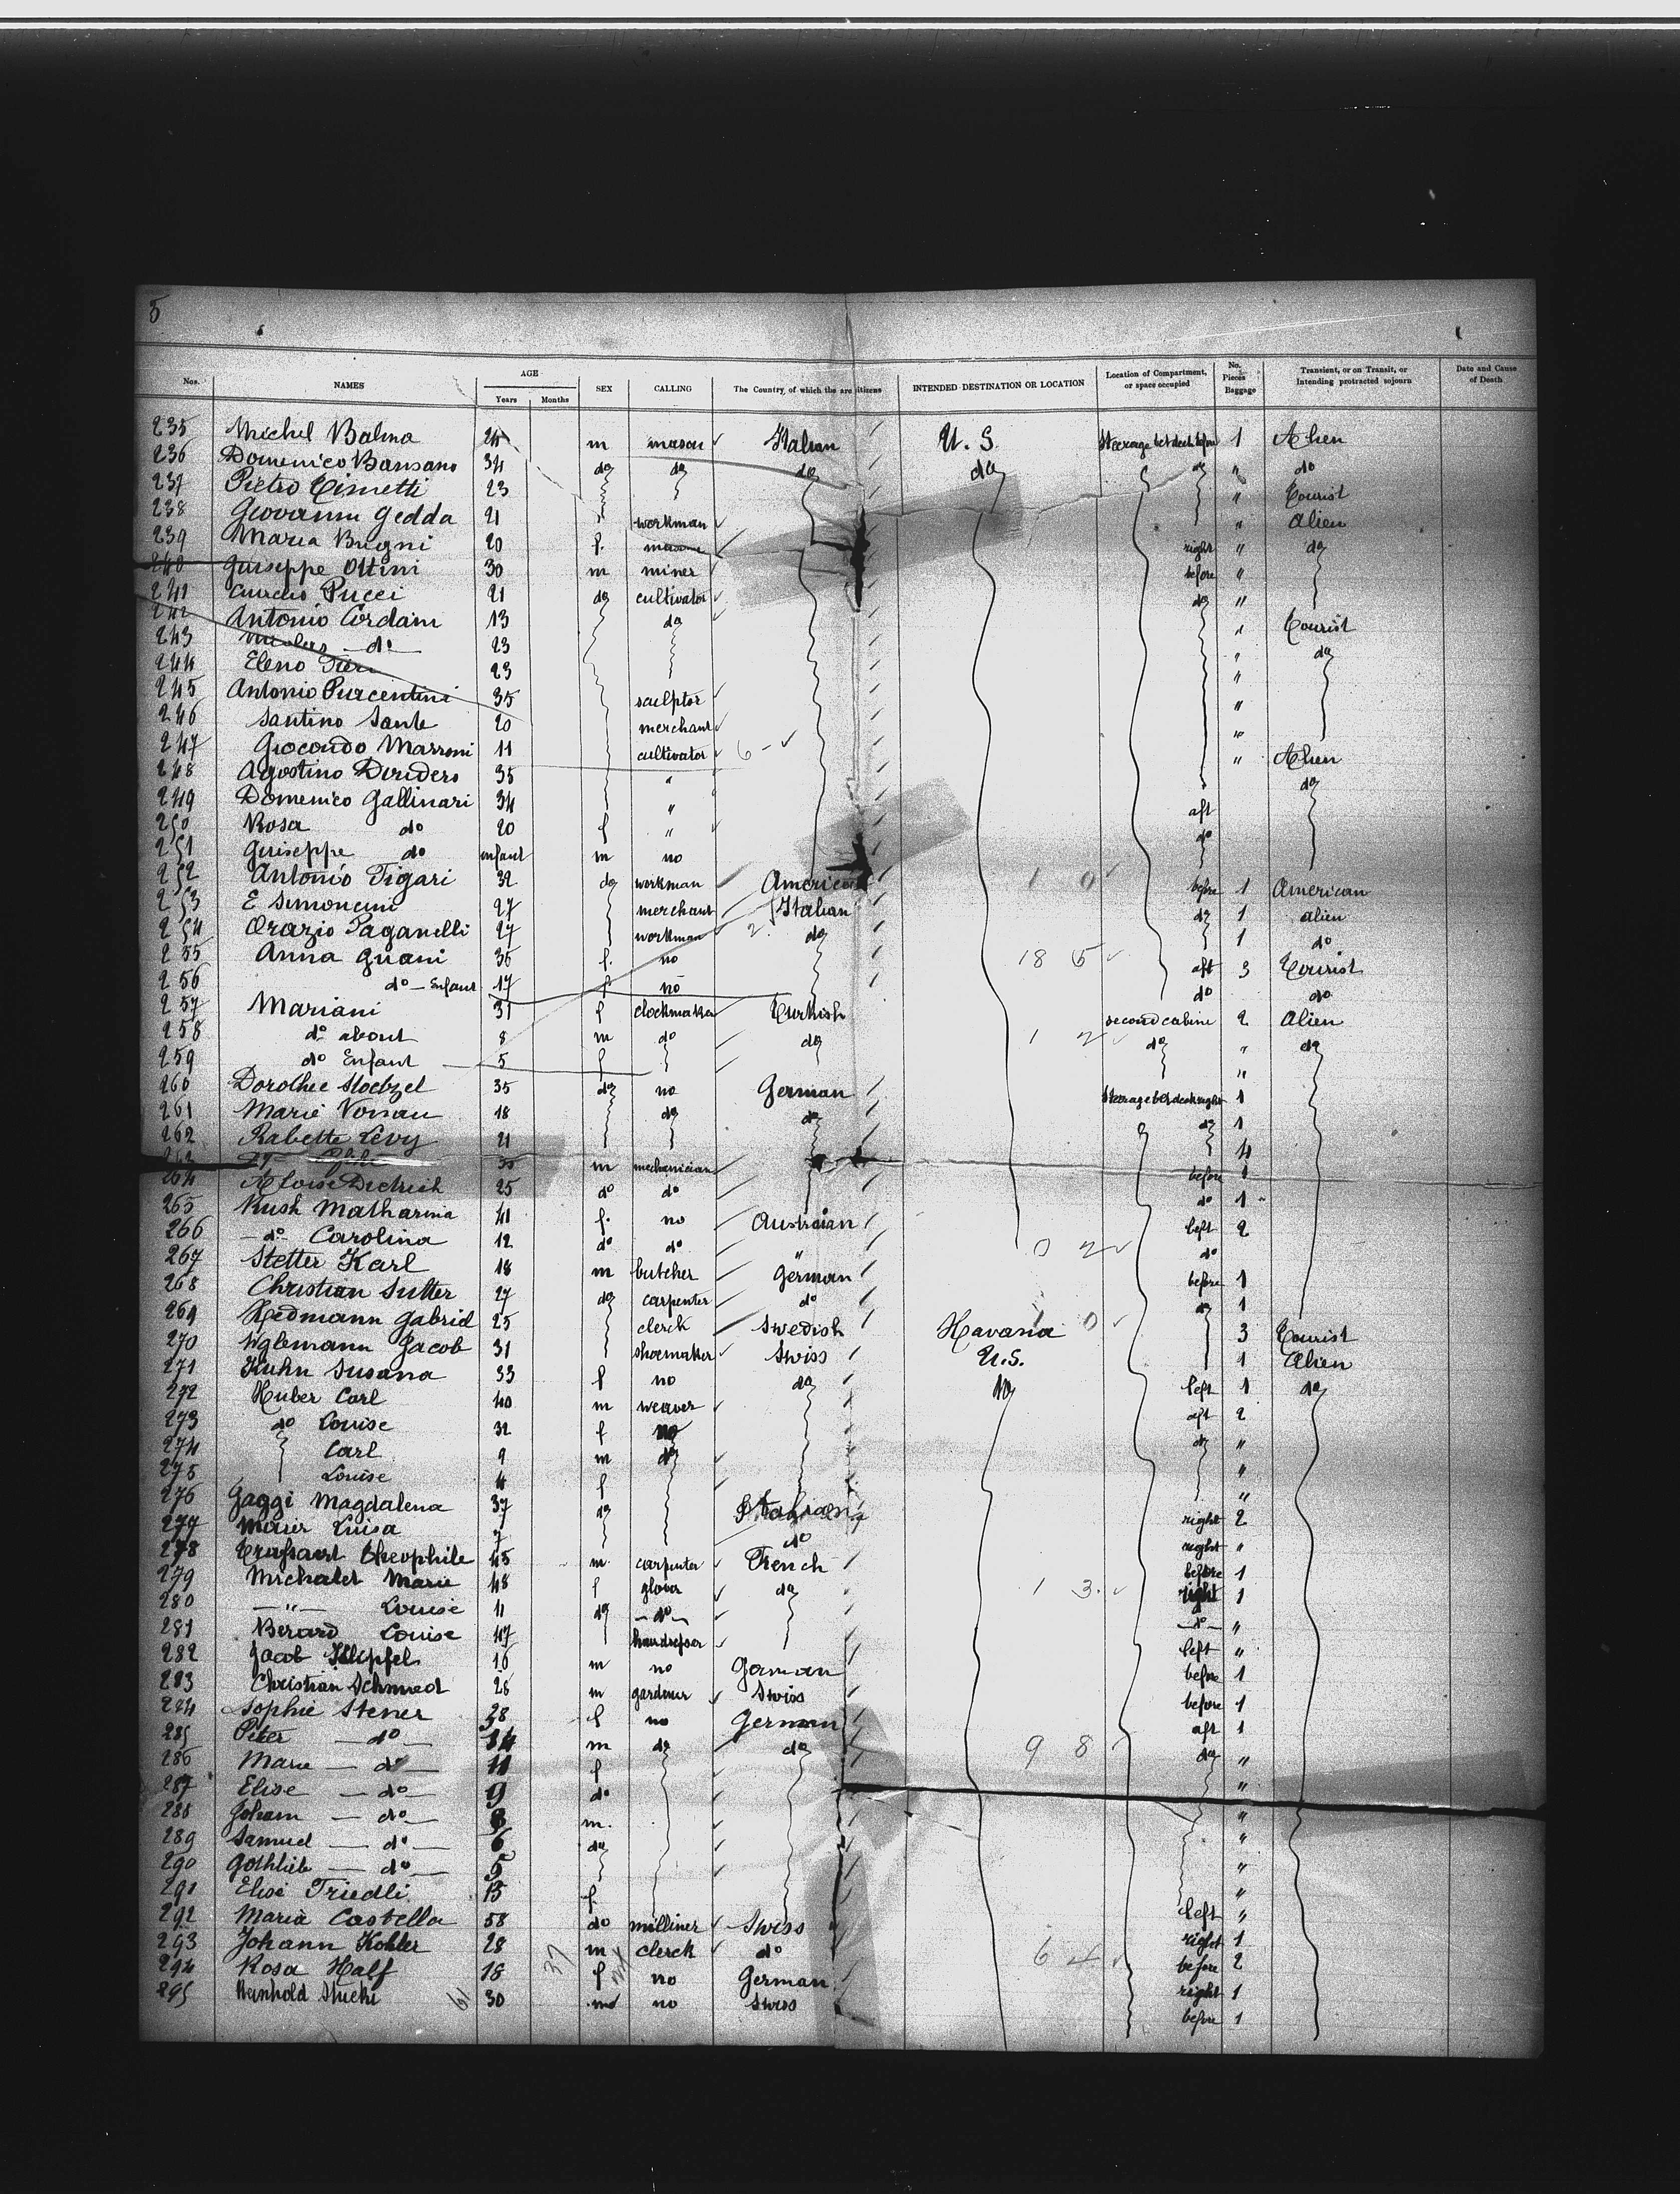 5
Nos. NAMES AGE Years Months SEX CALLING The Country, of which the are citizens INTENDED DESTINATION OR LOCATION Location of Compartment, or space occupied No. Pieces Baggage Transient, or on Transit, or Intending protracted sojourn Date and Cause of Death
235 Michel Balma 24 m mason Italian U. S. 1 Alien
236 Domenico Bansano 34 do do do do do " do
237 Pietro Cimetti 23 " Tourist
238 Giovanni Gedda 21 workman " Alien
239 Maria Brigni 20 f. right " do
240 Guiseppe Ottini 30 m miner before "
241 Pucci 21 do cultivator do "
242 Antonio Cordani 13 do " Tourist
243 do 23 " do
244 Eleno 23 "
245 Antonio Purcentini 35 sculptor "
246 Santino Sante 20 merchant "
247 Giocondo Marroni 11 cultivator 6 - " Alien
248 Agostino Doridero 35 " do
249 Domenico Gallinari 34 " aft
250 Rosa do 20 f " do
251 Guiseppe do enfant m no
252 Antonio Figari 32 do workman American 1 0 before 1 American
253 E Simoncini 27 merchant Italian do 1 alien
254 Orazio Paganelli 27 workman 2 do 1 do
255 Anna Guani 35 f. no 18 5 aft 3 Tourist
256 do - Enfant 17 f no do do
257 Mariani 31 f clockmaker Turkish second cabine 2 Alien
258 do about 8 m do do 1 2 do " do
259 do Enfant 5 f "
260 Dorothee Stoebzel 35 do no German 1
261 Marie 18 do do do 1
262 Rabette Levy 21 4
263 m mechanician before 1
264 Aloise Dietrich 25 do do do 1
265 Rush Matharina 41 f. no Austrian left 2
266 do Carolina 12 do do " 0 2 do
267 Stetter Karl 18 m butcher German before 1
268 Christian Sutter 27 do carpenter do do 1
269 Hedmann Gabriel 25 clerck Swedish Havana 0 3 Tourist
270 Wglemann Jacob 31 shoemaker Swiss U.S. 1 Alien
271 Kuhn Susana 33 f no do do left 1 do
272 Huber Carl 40 m weaver aft 2
273 do Louise 32 f no do "
274 Carl 9 m do "
275 Louise 4 f "
276 Gaggi Magdalena 37 do Italian right 2
277 Luisa 7 do right "
278 Theophile 45 m carpenter French before 1
279 Michalet Marie 48 f glover do 1 3 right 1
280 " Louise 11 do do do "
281 Berard Louise 47 left "
282 Jacob Klipfels 16 m no German before 1
283 Christian Schmied 28 m gardener Swiss before 1
284 Sophie Stener 38 f no German aft 1
285 Peter do 14 m do do 9 8 do "
286 Marie do 11 f "
287 Elise do 9 do "
288 Joham do 8 m. "
289 Samuel do 6 do "
290 Gothlieb do 5 "
291 Elise Friedli 15 f left "
292 Maria Costella 58 do milliner Swiss right 1
293 Johann Kohler 28 m clerck do 6 4 before 2
294 Rosa Half 18 f no German right 1
295 Reinhold Stucki 61 30 m no Swiss before 1